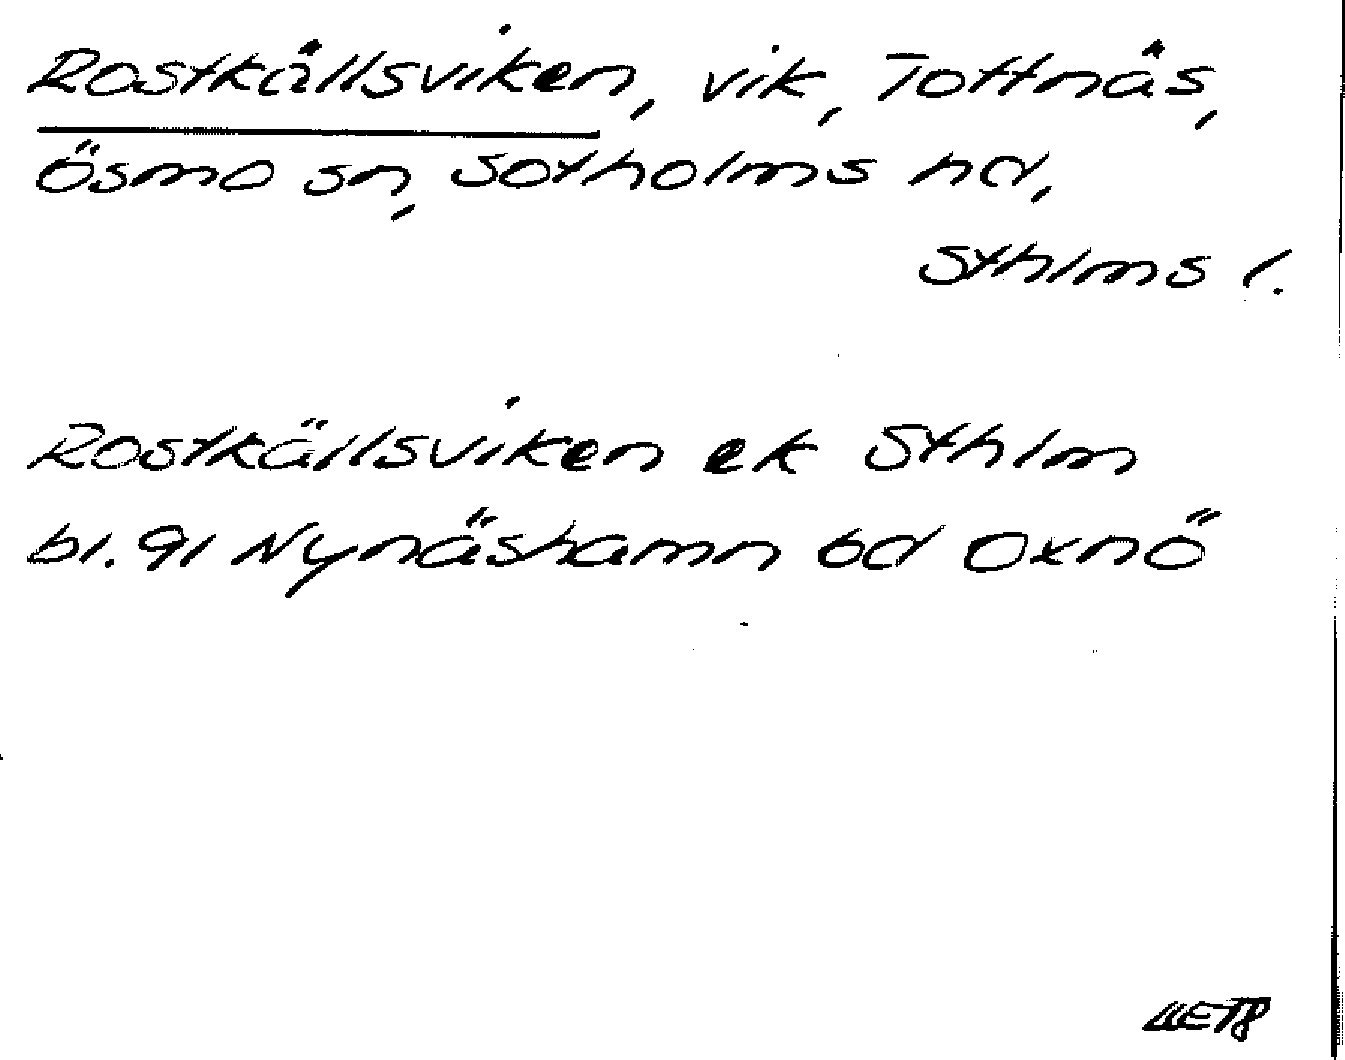 Rostkällsviken, vik, Tottnäs,
Ösmo sn, Sotholms hd,
Sthlms l.
Rostkällsviken ek Sthlm
bl. 91 Nynäshamn bd Oxnö